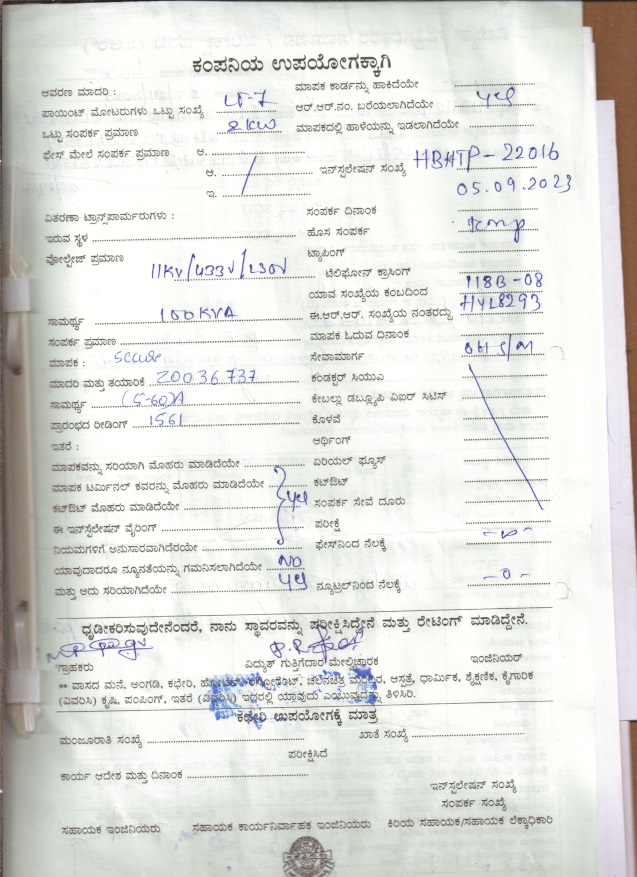 ಕಂಪನಿಯ ಉಪಯೋಗಕ್ಕಾಗಿ
ಆವರಣ ಮಾದರಿ : ಮಾಪಕ ಕಾರ್ಡನ್ನು ಹಾಕಿದೆಯೇ
ಪಾಯಿಂಟ್ ಮೋಟರುಗಳು ಒಟ್ಟು ಸಂಖ್ಯೆ LT-7 ಆರ್.ಆರ್.ನಂ. ಬರೆಯಲಾಗಿದೆಯೇ yes
ಒಟ್ಟು ಸಂಪರ್ಕ ಪ್ರಮಾಣ 2KW ಮಾಪಕದಲ್ಲಿ ಹಾಳೆಯನ್ನು ಇಡಲಾಗಿದೆಯೇ
ಫೇಸ್ ಮೇಲೆ ಸಂಪರ್ಕ ಪ್ರಮಾಣ ಅ.
ಆ. ಇನ್‌ಸ್ಟಲೇಷನ್ ಸಂಖ್ಯೆ HBHTP-22016
ಇ. 05.09.2023
ವಿತರಣಾ ಟ್ರಾನ್ಸ್‌ಪಾರ್ಮರುಗಳು : ಸಂಪರ್ಕ ದಿನಾಂಕ
ಇರುವ ಸ್ಥಳ ಹೊಸ ಸಂಪರ್ಕ
ವೋಲ್ಟೇಜ್ ಪ್ರಮಾಣ 11KV/433V/230V ಟ್ಯಾಪಿಂಗ್
ಟೆಲಿಫೋನ್ ಕ್ರಾಸಿಂಗ್
ಯಾವ ಸಂಖ್ಯೆಯ ಕಂಬದಿಂದ 118B-08
ಸಾಮರ್ಥ್ಯ 100KVA ಈ.ಆರ್.ಆರ್. ಸಂಖ್ಯೆಯ ನಂತರದ್ದು HYL8293
ಸಂಪರ್ಕ ಪ್ರಮಾಣ ಮಾಪಕ ಓದುವ ದಿನಾಂಕ
ಮಾಪಕ : secure ಸೇವಾಮಾರ್ಗ OH S/M
ಮಾದರಿ ಮತ್ತು ತಯಾರಿಕೆ 20036737 ಕಂಡಕ್ಟರ್ ಸಿಯುಎ
ಸಾಮರ್ಥ್ಯ (5-60)A ಕೇಬಲ್ಲು ಡಬ್ಲ್ಯೂಪಿ ವಿಐರ್ ಸಿಟಿಸ್
ಪ್ರಾರಂಭದ ರೀಡಿಂಗ್ 1561 ಕೊಳವೆ
ಇತರೆ : ಅರ್ಥಿಂಗ್
ಮಾಪಕವನ್ನು ಸರಿಯಾಗಿ ಮೊಹರು ಮಾಡಿದೆಯೇ ಏರಿಯಲ್ ಫ್ಯೂಸ್
ಮಾಪಕ ಟರ್ಮಿನಲ್ ಕವರನ್ನು ಮೊಹರು ಮಾಡಿದೆಯೇ ಕಟ್‌ಔಟ್
ಕಟ್‌ಔಟ್ ಮೊಹರು ಮಾಡಿದೆಯೇ yes ಸಂಪರ್ಕ ಸೇವೆ ದೂರು
ಈ ಇನ್‌ಸ್ಟೆಲೇಷನ್ ವೈರಿಂಗ್ ಪರೀಕ್ಷೆ
ನಿಯಮಗಳಿಗೆ ಅನುಸಾರವಾಗಿದೆರಯೇ ಫೇಸ್‌ನಿಂದ ನೆಲಕ್ಕೆ
ಯಾವುದಾದರೂ ನ್ಯೂನತೆಯನ್ನು ಗಮನಿಸಲಾಗಿದೆಯೇ NO
ಮತ್ತು ಅದು ಸರಿಯಾಗಿದೆಯೇ yes ನ್ಯೂಟ್ರಲ್‌ನಿಂದ ನೆಲಕ್ಕೆ -0-
ಧೃಡೀಕರಿಸುವುದೇನೆಂದರೆ, ನಾನು ಸ್ಥಾವರವನ್ನು ಪರೀಕ್ಷಿಸಿದ್ದೇನೆ ಮತ್ತು ರೇಟಿಂಗ್ ಮಾಡಿದ್ದೇನೆ.
ಗ್ರಾಹಕರು ವಿದ್ಯುತ್ ಗುತ್ತಿಗೆದಾರ ಮೇಲ್ವಿಚಾರಕ ಇಂಜಿನಿಯರ್
** ವಾಸದ ಮನೆ, ಅಂಗಡಿ, ಕಛೇರಿ, ಆಸ್ಪತ್ರೆ, ಧಾರ್ಮಿಕ, ಶೈಕ್ಷಣಿಕ, ಕೈಗಾರಿಕ
(ವಿವರಿಸಿ) ಕೃಷಿ, ಪಂಪಿಂಗ್, ಇತರೆ (ವಿವರಿಸಿ) ಇದ್ದರಲ್ಲಿ ಯಾವುದು ಎಂಬುವುದನ್ನು ತಿಳಿಸಿರಿ.
ಕಛೇರಿ ಉಪಯೋಗಕ್ಕೆ ಮಾತ್ರ
ಮಂಜೂರಾತಿ ಸಂಖ್ಯೆ ಖಾತೆ ಸಂಖ್ಯೆ
ಪರೀಕ್ಷಿಸಿದೆ
ಕಾರ್ಯ ಆದೇಶ ಮತ್ತು ದಿನಾಂಕ
ಇನ್‌ಸ್ಟಲೇಷನ್ ಸಂಖ್ಯೆ
ಸಂಪರ್ಕ ಸಂಖ್ಯೆ
ಸಹಾಯಕ ಇಂಜಿನಿಯರು ಸಹಾಯಕ ಕಾರ್ಯನಿರ್ವಾಹಕ ಇಂಜಿನಿಯರು ಕಿರಿಯ ಸಹಾಯಕ/ಸಹಾಯಕ ಲೆಕ್ಕಾಧಿಕಾರಿ